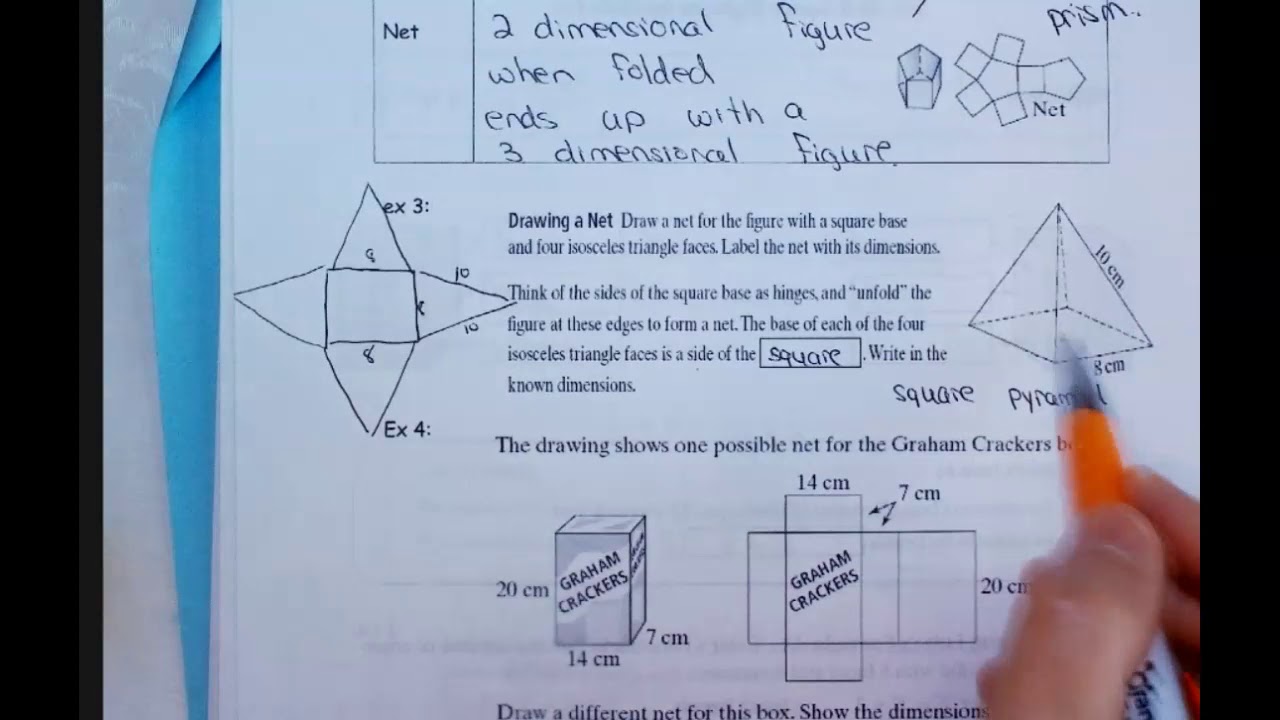 prism.
Net
2 dimensional figure
when folded
ends up with a
3 dimensional figure.
Net
ex 3:
Drawing a Net Draw a net for the figure with a square base
and four isosceles triangle faces. Label the net with its dimensions.
Think of the sides of the square base as hinges, and “unfold” the
figure at these edges to form a net. The base of each of the four
isosceles triangle faces is a side of the square. Write in the
known dimensions.
8
10
8
10
8
10 cm
8 cm
square
Ex 4:
The drawing shows one possible net for the Graham Crackers
14 cm
7 cm
GRAHAM
CRACKERS
20 cm
7 cm
14 cm
GRAHAM
CRACKERS
20
Draw a different net for this box. Show the dimensions